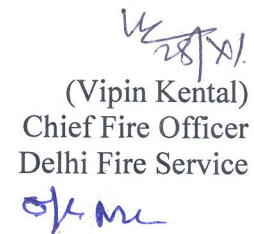 28/XI.
(Vipin Kental)
Chief Fire Officer
Delhi Fire Service